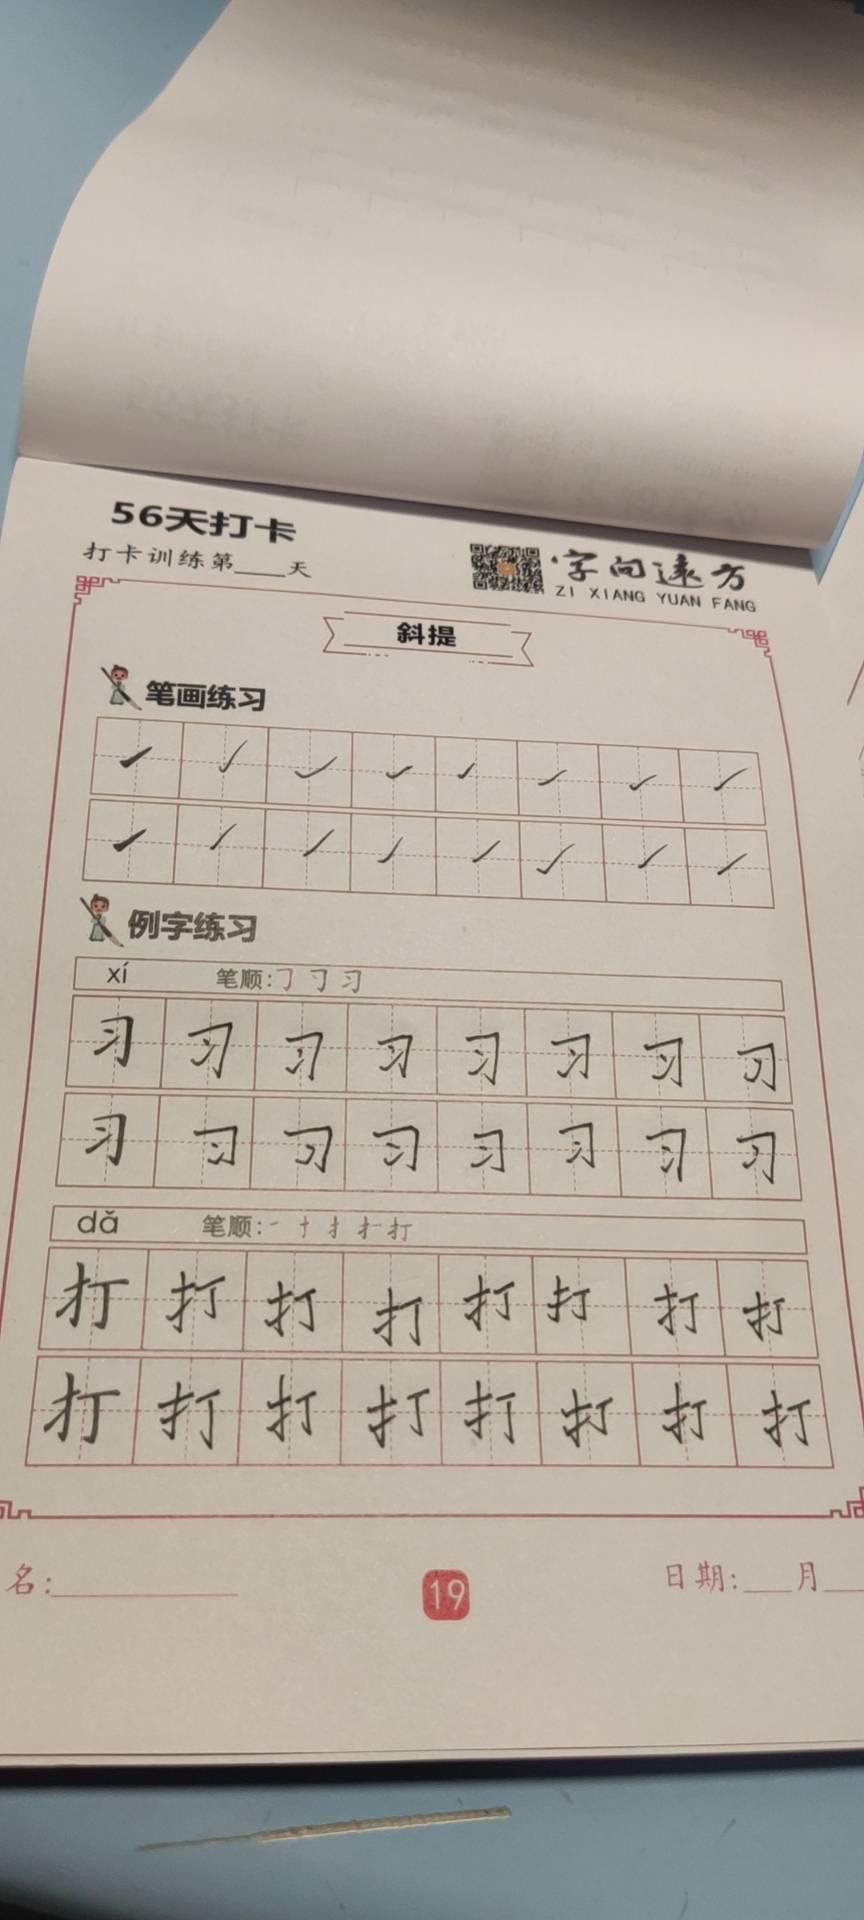 56天打卡
打卡训练第____天
字向远方
ZI XIANG YUAN FANG
斜提
笔画练习
例字练习
xí 笔顺:㇆ 习
习 习 习 习 习 习 习 习
习 习 习 习 习 习 习 习
dǎ 笔顺:一 十 扌 扌一 打
打 打 打 打 打 打 打 打
打 打 打 打 打 打 打 打
名:____ 19 日期:____月____